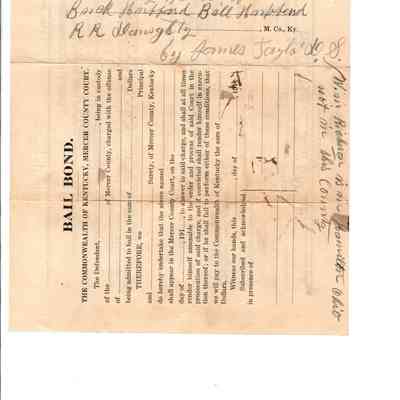 Buck Hartford Bill Hartford
R R Daughty, M. Co, Ky.
by James Taylor D. S.
is in Hamilton Ohio
not in this County
BAIL BOND.
THE COMMONWEALTH OF KENTUCKY, MERCER COUNTY COURT.
The Defendant, , being in custody
of the of Mercer County, charged with the offense
of and
being admitted to bail in the sum of Dollars
THEREFORE, we Principal
and Surety, of Mercer County, Kentucky
do hereby undertake that the above named
shall appear in the Mercer County Court, on the
day of , 191 , to answer to said charge, and shall at all times
render himself amenable to the order and process of said Court in the
prosecution of said charge, and if convicted shall render himself in execu-
tion thereof; or if he shall fail to perform either of these conditions, that
we will pay to the Commonwealth of Kentucky the sum of
Dollars.
Witness our hands, this day of
Subscribed and acknowledged
in presence of